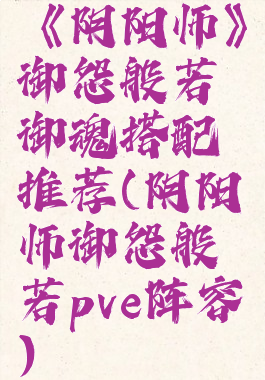 《阴阳师》
御怨般若
御魂搭配
推荐(阴阳
师御怨般
若pve阵容
)